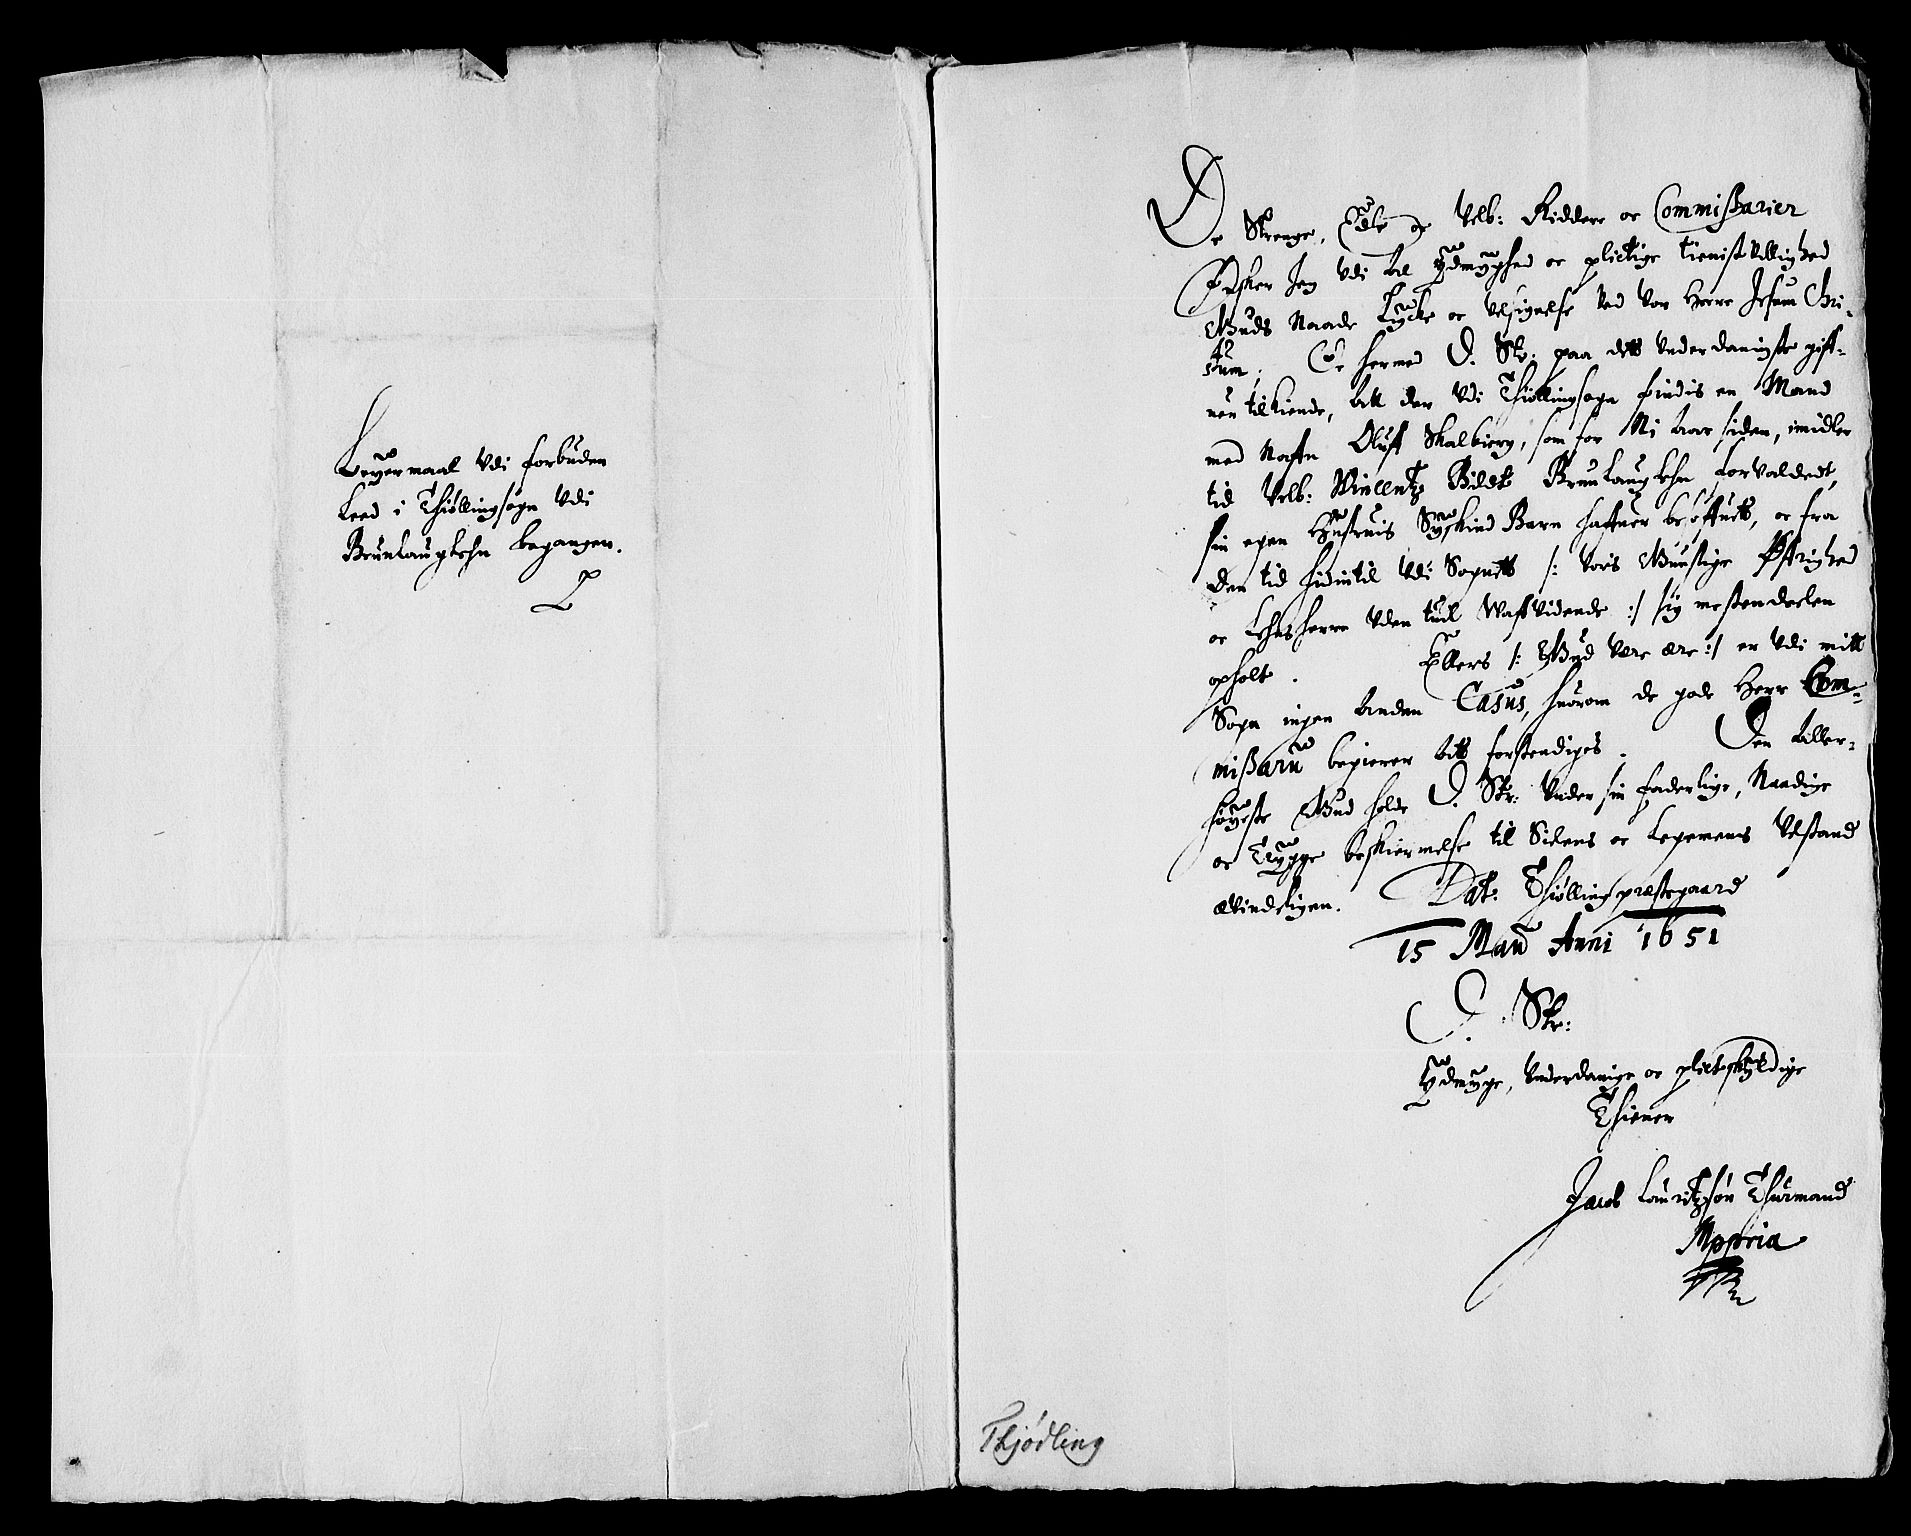 Leyermaal Vdi forbuden
Leed i Thiøllingsogn Vdi
Brunlaugslehn begangen.
De Strenge, Edle oc Velb: Riddere oc Commissarier
Ønsker Jeg Vdi al Ydmyghed oc plictige tienistvillighed
Guds Naade Lycke oc Velsignelse Ved Vor Herre Jesum Chri-
stum. Oc hermed D. Str: paa dett Vnderdanigste giff-
uen tilkiende, att der Vdi Thiøllingsogn findis en Mand
med Naffn Oluff Skalbierg, som for Ni Aar siden, imidler
tid Velb: Vincentz Bildt Brunlaugslehn forvaldedt,
sin egen Hustruis Syskind Barn haffuer besoffuett, oc fra
den tid hidintil Vdi Sognett /: Vors Gunstige Øffrighed
oc Lehns herre Vden tuil Vaffvidende :/ sig mestendeelen
opholt. Ellers /: Gud Være ære :/ er Vdi mitt
Sogn ingen Anden Casus, huorom de gode Herr Com-
missarii begierer Att forstendiges. Den Aller-
høyeste Gud holde D. Str: Vnder sin faderlige, Naadige
oc Trygge beskiermelse til Sielens oc Legemens Velstand
æVindeligen. Dat: Thiølling præstegaard
15 Maii Anni 1651
D. Str:
Ydmyge, Vnderdanige oc plictskyldige
Thiener
Jacob Lauritzsøn Thurmand
Mppria
Thjødling